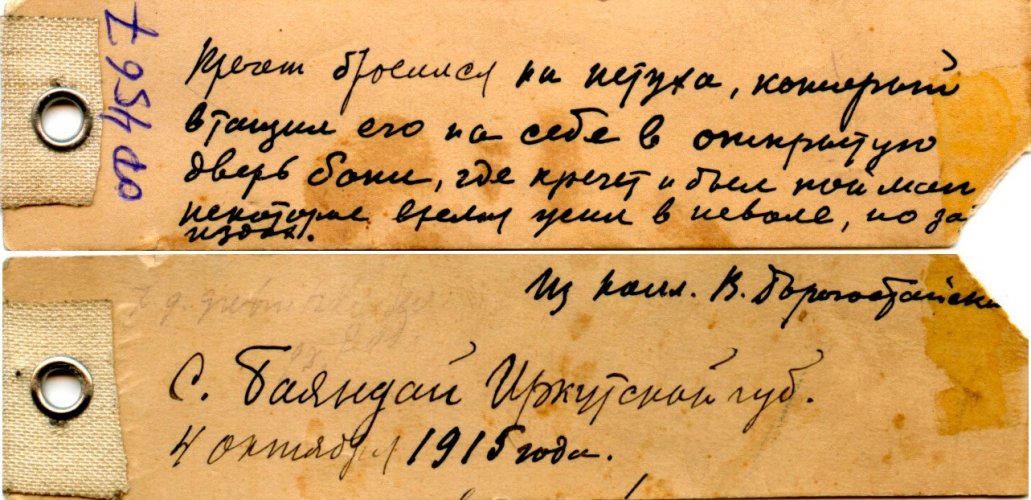 00 4567
Кречет бросился на петуха, который
втащил его на себе в открытую
дверь бани, где кречет и был пойман
некоторое время жил в неволе, но за
издох.
Из колл. В.
С. Баяндай Иркутской губ.
4 октября 1915 года.